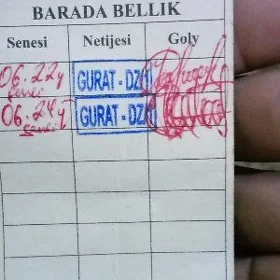 BARADA BELLIK
Senesi Netijesi Goly
06.22ý GURAT-DZ
senesi
06.24ý GURAT-DZ
senesi